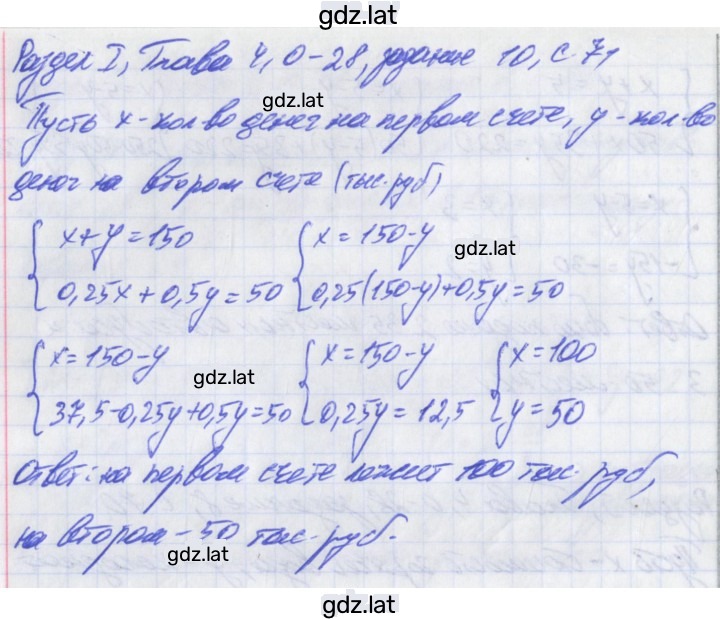 gdz.lat
Раздел I, Глава 4, О-28, задание 10, с. 71
gdz.lat
Пусть x - кол-во денег на первом счете, y - кол-во
денег на втором счете (тыс. руб)
{ x+y=150 { x=150-y
gdz.lat
0,25x+0,5y=50 0,25(150-y)+0,5y=50
{ x=150-y { x=150-y { x=100
gdz.lat
37,5-0,25y+0,5y=50 0,25y=12,5 y=50
Ответ: на первом счете лежит 100 тыс. руб,
на втором - 50 тыс. руб.
gdz.lat
gdz.lat